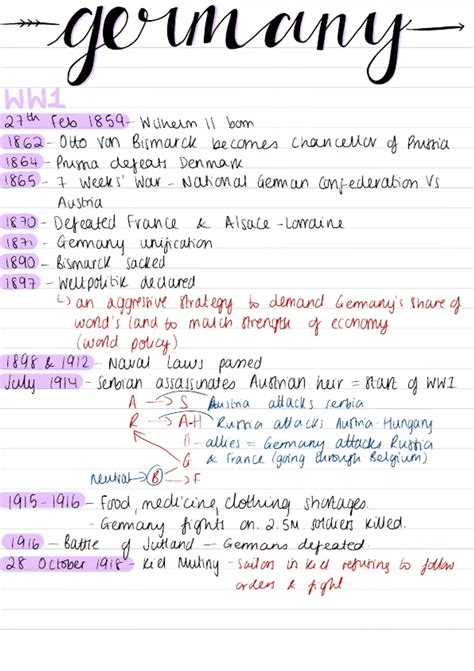 germany
WW1
27th Feb 1859 - Wilhelm II born
1862 - Otto von Bismarck becomes chancellor of Prussia
1864 - Prussia defeats Denmark
1865 - 7 Weeks' War - National German Confederation Vs
Austria
1870 - Defeated France & Alsace-Lorraine
1871 - Germany unification
1890 - Bismarck sacked
1897 - Weltpolitik declared
↳ an aggressive strategy to demand Germany's share of
world's land to match strength of economy
(world policy)
1898 & 1912 - Naval Laws passed
July 1914 - Serbian assassinates Austrian heir = start of WW1
A → S Austria attacks serbia
R → A-H Russia attacks Austria-Hungary
|| - allies = Germany attacks Russia
G & France (going through Belgium)
neutral B → F
1915-1916 - Food, medicine, clothing shortages.
- Germany fights on. 2.5M soldiers killed.
1916 - Battle of Jutland - Germans defeated.
28 October 1918 - Kiel Mutiny - sailors in Kiel refusing to follow
orders & fight